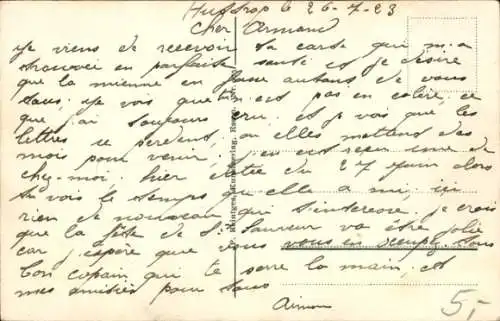 Huttrop le 26-7-23
Cher Armand
je viens de recevoir ta carte qui m'a
trouvé en parfaite santé et je désire
que la mienne en fasse autant de vous
tous, je vois que tu n'est pas en colère ce
que j'ai toujours cru, et je vois que les
lettres se perdent, ou elles mettent des
mois pour venir, j'en est reçu une de
chez-moi hier datée du 27 Juin alors
tu vois le temps qu'elle a mis, ici
rien de nouveau qui t'intéresse, je crois
que la fête de St Sauveur va être jolie
car j'espère que vous vous en occupez. Ton
bon copain qui te serre la main, et
mes amitiés pour tous
Aimon
Kunstverlag, Essen
5,-